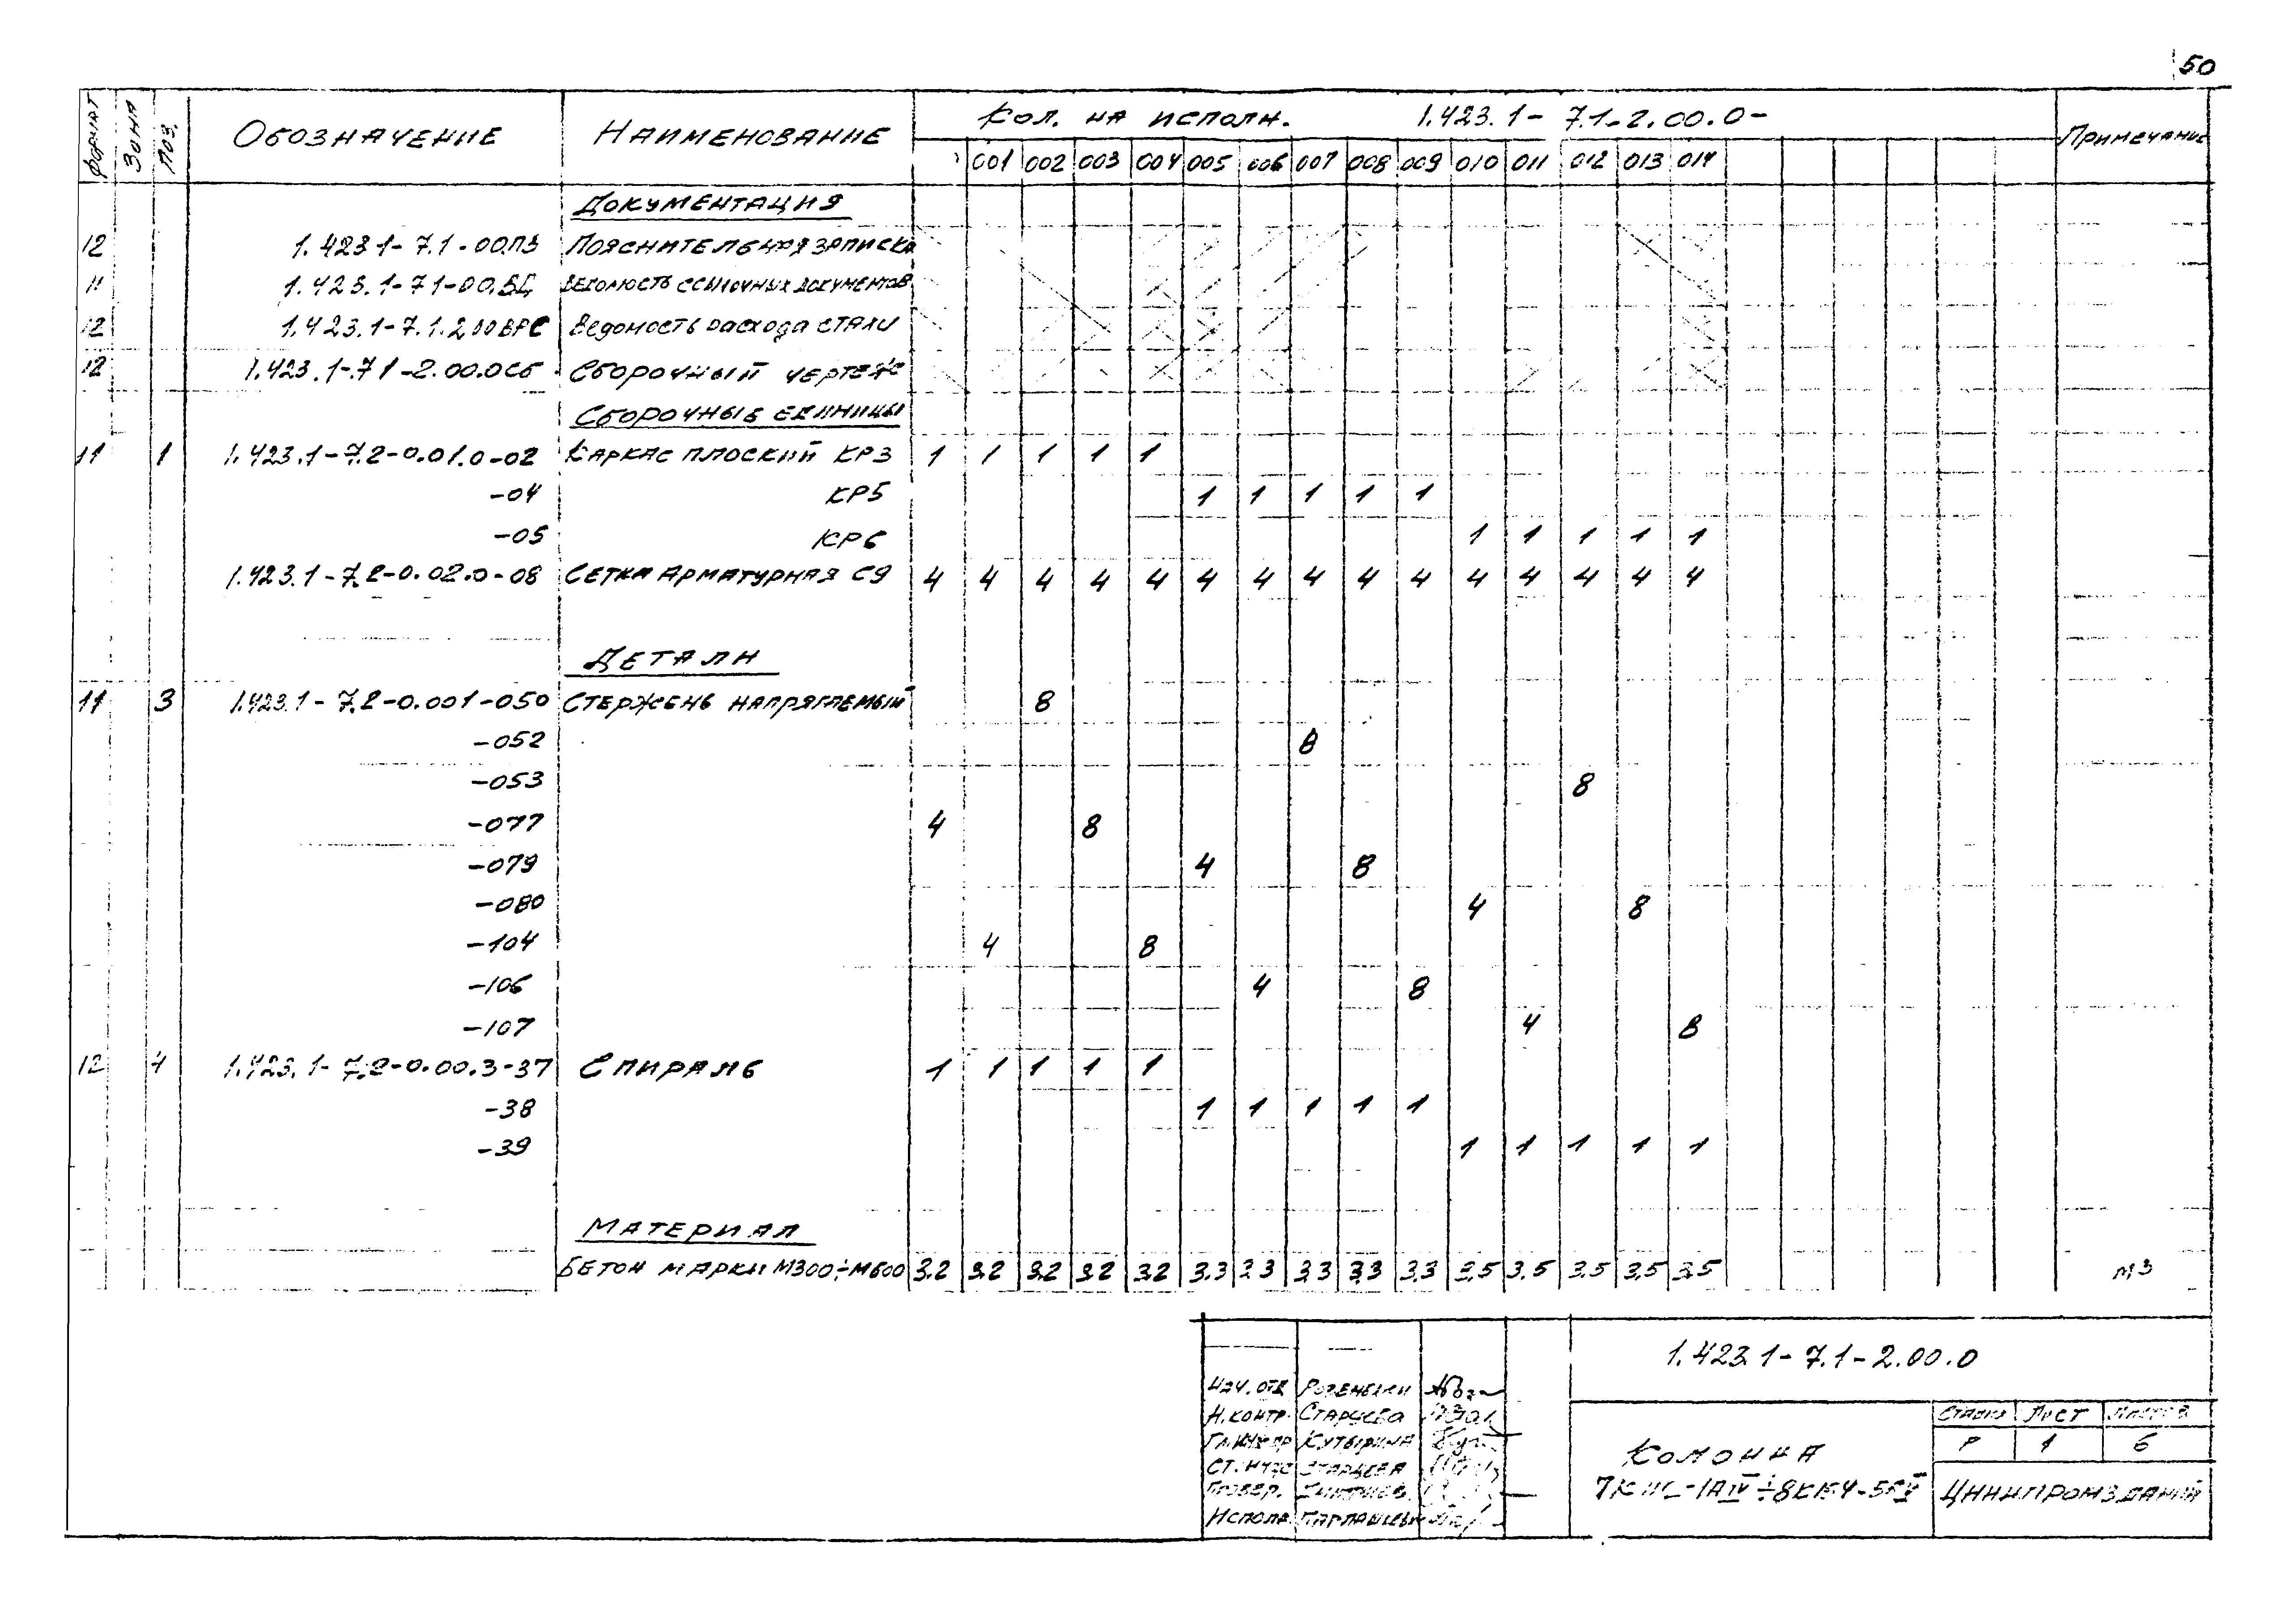 50
Формат Зона Поз. Обозначение Наименование Кол. на исполн. 1.423.1-7.1-2.00.0- Примечание
001 002 003 004 005 006 007 008 009 010 011 012 013 014
Документация
12 1.423 1-7.1-00ПЗ Пояснительная записка
11 1.423.1-7 1-00.ВД Ведомость ссылочных документов
12 1.423.1-7.1.2.00ВРС Ведомость расхода стали
12 1.423.1-7 1-2.00.0СБ Сборочный чертеж
Сборочные единицы
11 1 1.423.1-7.2-0.01.0-02 Каркас плоский КР3 1 1 1 1 1
-04 КР5 1 1 1 1 1
-05 КР6 1 1 1 1 1
1.423.1-7.2-0.02.0-08 Сетка арматурная С9 4 4 4 4 4 4 4 4 4 4 4 4 4 4 4
Детали
11 3 1.423.1-7.2-0.001-050 Стержень напрягаемый 8
-052 8
-053 8
-077 4 8
-079 4 8
-080 4 8
-104 4 8
-106 4 8
-107 4 8
12 4 1.423.1-7.2-0.00.3-37 Спираль 1 1 1 1 1
-38 1 1 1 1 1
-39 1 1 1 1 1
Материал
Бетон марки М300÷М600 3.2 3.2 3.2 3.2 3.2 3.3 3.3 3.3 3.3 3.3 3.5 3.5 3.5 3.5 3.5 м3
1.423.1-7.1-2.00.0
Нач. отд
Н.контр. Старцева
Гл.инж.пр Кутырина
Ст. инж. Старцева
Провер.
Исполн.
Колонна
Стадия Лист Листов
Р 1 6
ЦНИИПРОМЗДАНИЙ